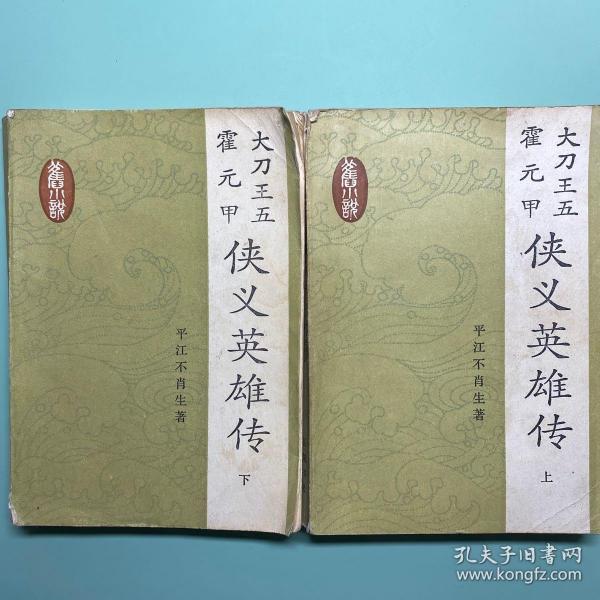 大刀王五
霍元甲
侠义英雄传
下
平江不肖生著
舊小說
大刀王五
霍元甲
侠义英雄传
上
平江不肖生著
舊小說
孔夫子旧书网
www.kongfz.com